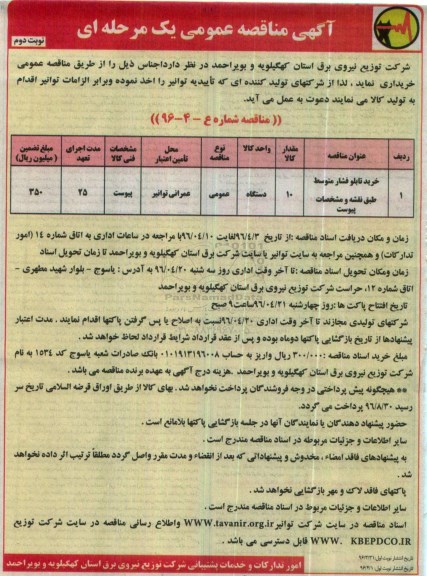 آگهی مناقصه عمومی یک مرحله ای
نوبت دوم
شرکت توزیع نیروی برق استان کهگیلویه و بویراحمد در نظر دارداجناس ذیل را از طریق مناقصه عمومی
خریداری نماید ، لذا از شرکتهای تولید کننده ای که تأییدیه توانیر را اخذ نموده وبرابر الزامات توانیر اقدام
به تولید کالا می نمایند دعوت به عمل می آید.
(( مناقصه شماره ع - ۴-۹۶ ))
ردیف عنوان مناقصه مقدار کالا واحد کالا نوع مناقصه محل تأمین اعتبار مشخصات فنی کالا مدت اجرای تعهد مبلغ تضمین ( میلیون ریال)
۱ خرید تابلو فشار متوسط طبق نقشه و مشخصات پیوست ۱۰ دستگاه عمومی عمرانی توانیر پیوست ۲۵ ۳۵۰
زمان و مکان دریافت اسناد مناقصه :از تاریخ ۹۶/۴/۳لغایت ۹۶/۰۴/۱۰با مراجعه در ساعات اداری به اتاق شماره ۱۴ (امور
تدارکات) و همچنین مراجعه به سایت توانیر یا سایت شرکت برق استان کهگیلویه و بویراحمد تا زمان تحویل اسناد
زمان ومکان تحویل اسناد مناقصه :تا آخر وقت اداری روز سه شنبه ۹۶/۰۴/۲۰ به آدرس : یاسوج - بلوار شهید مطهری -
اتاق شماره ۱۲، حراست شرکت توزیع نیروی برق استان کهگیلویه و بویراحمد
تاریخ افتتاح پاکت ها :روز چهارشنبه ۹۶/۰۴/۲۱ساعت۹ صبح
شرکتهای تولیدی مجازند تا آخر وقت اداری ۹۶/۰۴/۲۰نسبت به اصلاح یا پس گرفتن پاکتها اقدام نمایند . مدت اعتبار
پیشنهادها از تاریخ بازگشایی پاکتها دوماه بوده و پس از عقد قرارداد شرایط قرارداد لحاظ خواهد شد .
مبلغ خرید اسناد مناقصه :۳۰۰/۰۰۰ ریال واریز به حساب ۰۱۰۱۹۱۳۱۹۶۰۰۸ بانک صادرات شعبه یاسوج کد ۱۵۳۴ به نام
شرکت توزیع نیروی برق استان کهگیلویه و بویراحمد .هزینه درج آگهی به عهده برنده مناقصه می باشد .
** هیچگونه پیش پرداختی در وجه فروشندگان پرداخت نخواهد شد . بهای کالا از طریق اوراق قرضه السلامی تاریخ سر
رسید ۹۶/۸/۳۰ پرداخت می گردد.
حضور پیشنهاد دهندگان یا نمایندگان آنها در جلسه بازگشایی پاکتها بلامانع است .
سایر اطلاعات و جزئیات مربوطه در اسناد مناقصه مندرج است .
به پیشنهادهای فاقد امضاء ، مخدوش و پیشنهاداتی که بعد از انقضاء و مدت مقرر واصل گردد مطلقاً ترتیب اثر داده نخواهد
شد .
پاکتهای فاقد لاک و مهر بازگشایی نخواهد شد .
سایر اطلاعات و جزئیات مربوط در اسناد مناقصه مندرج است .
اسناد مناقصه در سایت شرکت توانیر WWW.tavanir.org.ir واطلاع رسانی مناقصه در سایت شرکت توزیع
WWW. KBEPDCO.IR قابل دسترسی می باشد .
تاریخ انتشار نوبت اول:۹۶/۳/۳۱
امور تدارکات و خدمات پشتیبانی شرکت توزیع نیروی برق استان کهگیلویه و بویراحمد